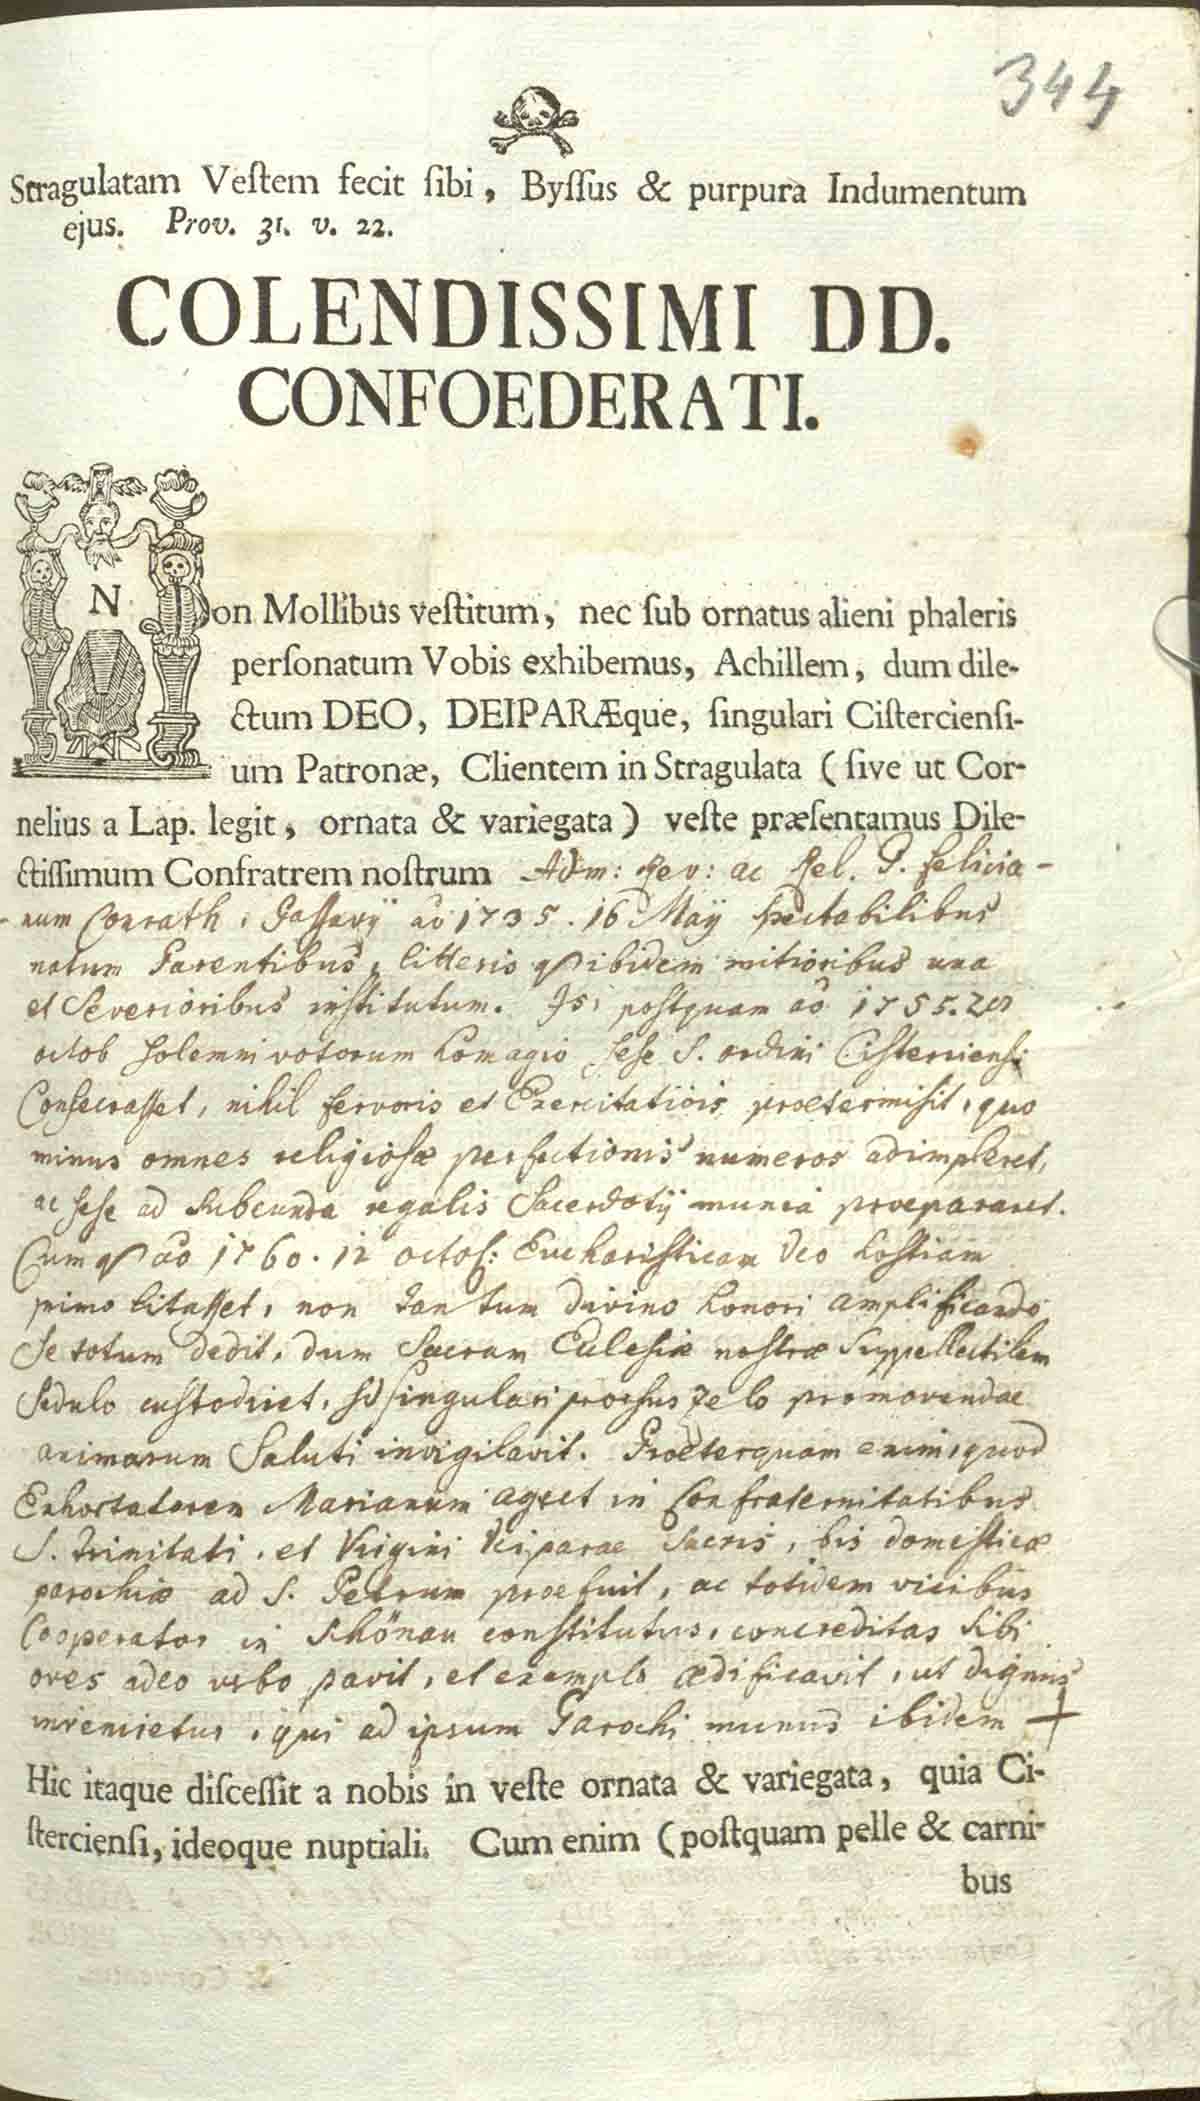 344
Stragulatam Vestem fecit sibi, Byssus & purpura Indumentum
ejus. Prov. 31. v. 22.
COLENDISSIMI DD.
CONFOEDERATI.
Non Mollibus vestitum, nec sub ornatus alieni phaleris
personatum Vobis exhibemus, Achillem, dum dile-
ctum DEO, DEIPARÆque, singulari Cisterciensi-
um Patronæ, Clientem in Stragulata (sive ut Cor-
nelius a Lap. legit, ornata & variegata) veste præsentamus Dile-
ctissimum Confratrem nostrum Adm: Rev: ac Rel. P. Felicia-
num Conrath, Passavij aõ 1735. 16 Maij spectabilibus
natum Parentibus, litteris qȝ ibidem mitioribus una
et Severioribus institutum. Is, postquam aõ 1755.
octob solemni votorum homagio sese S. ordini Cisterciensi
Consecrasset, nihil fervoris et Exercitatiõis praetermisit, quo
minus omnes religiosæ perfectionis numeros adimpleret,
ac sese ad subeunda regalis Sacerdotij munia praepararet.
Cumqȝ aõ 1760. 12 octob: Eucharisticam Deo hostiam
primo litasset, non tantum divino honori amplificando
se totum dedit, dum Sacram Ecclesiæ nostræ Suppellectilem
sedulo custodiret, sed singulari prorsus zelo promovendae
animarum Saluti invigilavit. Praeterquam enim, quod
Exhortatorem Marianum ageret in Confraternitatibus
S. Trinitati, et Virgini Deiparae Sacris, bis domesticæ
parochiæ ad S. Petrum praefuit, ac totidem vicibus
Cooperator in Schönau constitutus, concreditas sibi
oves adeo verbo pavit, et exemplo ædificavit, ut dignus
inveniretur, qui ad ipsum Parochi munus ibidem +
Hic itaque discessit a nobis in veste ornata & variegata, quia Ci-
sterciensi, ideoque nuptiali. Cum enim (postquam pelle & carni-
bus